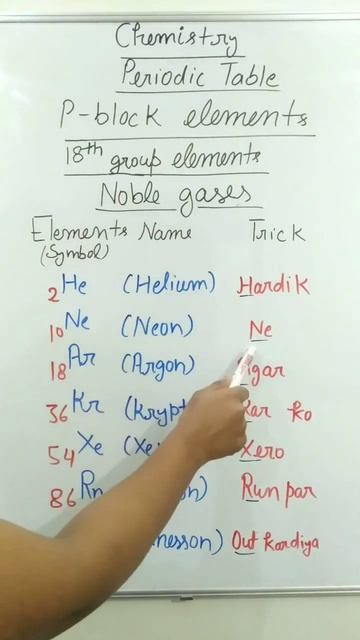 Chemistry
Periodic Table
P-block elements
18th group elements
Noble gases
Elements Name Trick
(Symbol)
2He (Helium) Hardik
10Ne (Neon) Ne
18Ar (Argon)
36Kr ko
54Xe Xero
86Rn Run par
Out Kardiya